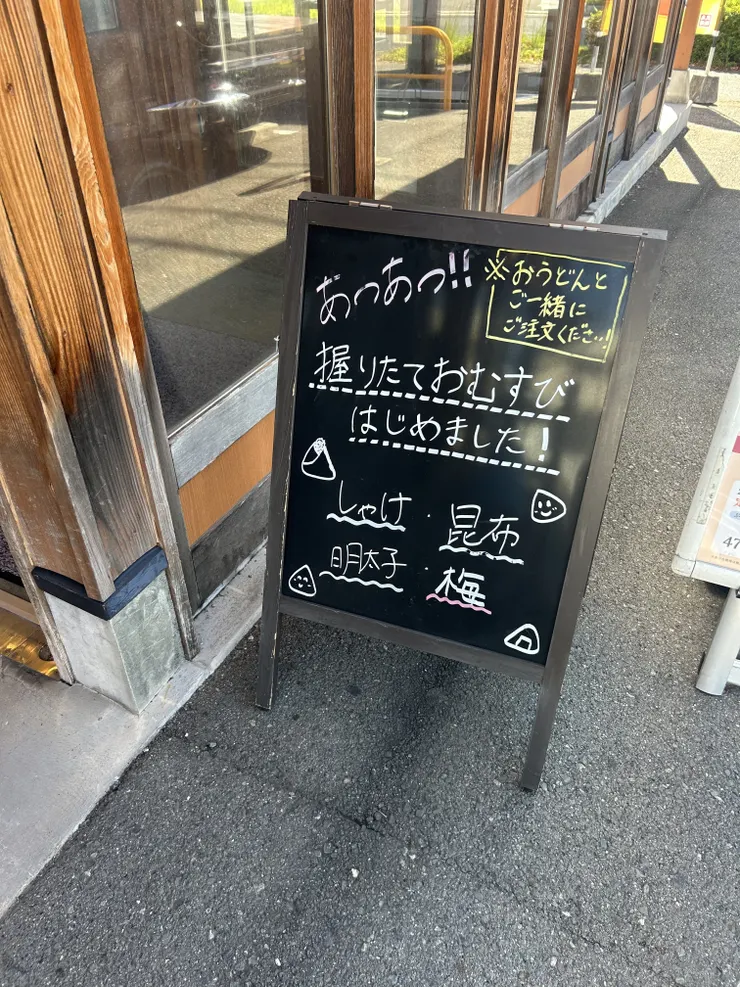 あつあつ!!
※おうどんと
ご一緒に
ご注文ください!
握りたておむすび
はじめました!
しゃけ・昆布
明太子・梅
47